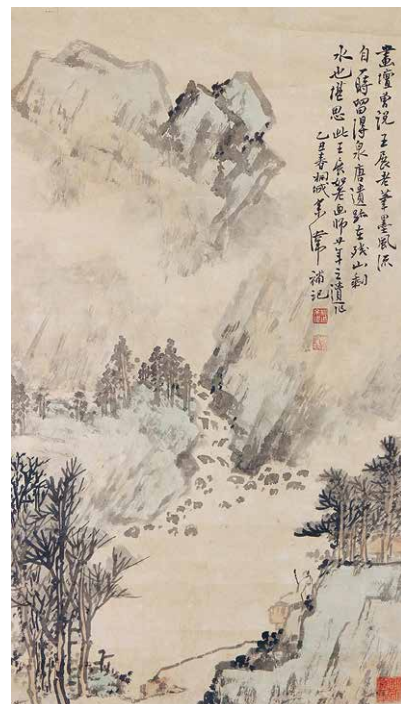 畫壇曾说王展老筆墨風流
自一時留得泉唐遺跡在残山剩
水也堪思此王展老画師廿年之遺
乙丑春桐城補記